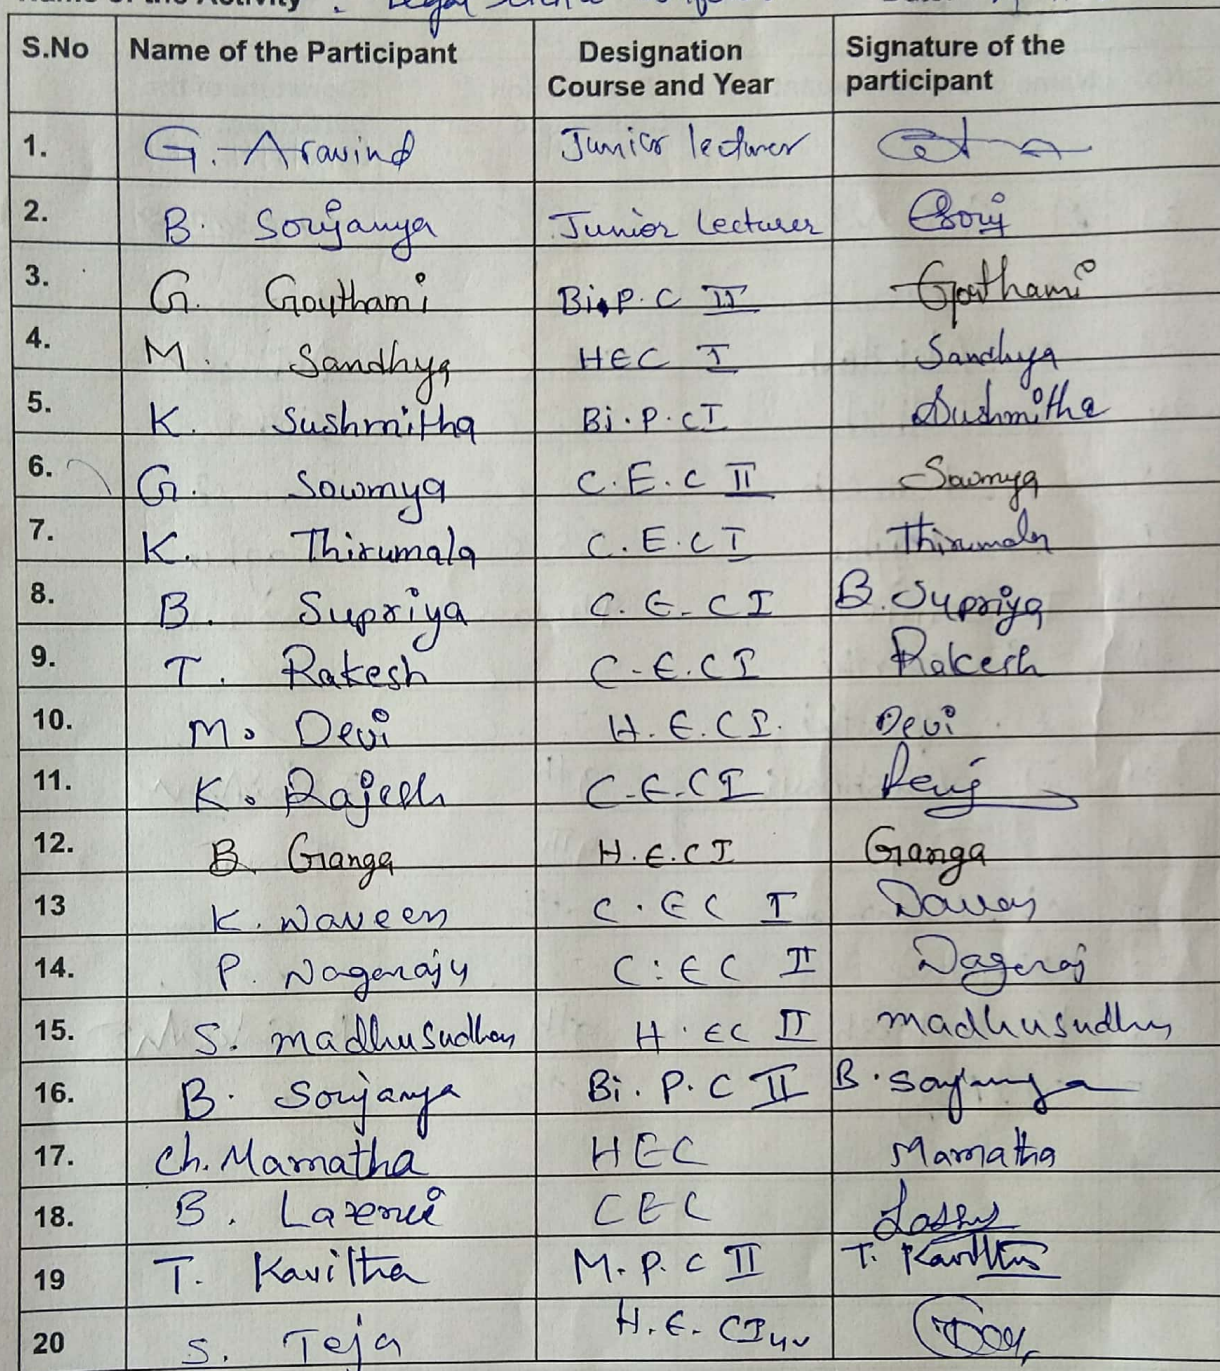 Name of the Activity : Legal
S.No Name of the Participant Designation Course and Year Signature of the participant
1. G. Aravind Junior lecturer
2. B. Sowjanya Junior Lecturer Sowj
3. G. Gouthami Bi.P.C II Gouthami
4. M. Sandhya HEC I Sandhya
5. K. Sushmitha Bi.P.C I Sushmitha
6. G. Sowmya C.E.C II Sowmya
7. K. Thirumala C.E.C I Thirumala
8. B. Supriya C.E.C I B. Supriya
9. T. Rakesh C.E.C I Rakesh
10. M. Devi H.E.C I. Devi
11. K. Rajesh C.E.C I
12. B Ganga H.E.C I Ganga
13 K. Naveen C.EC I
14. P. Nagaraju C.EC II Nagaraj
15. S. madhusudhan H.EC II madhusudhn
16. B. Sowjanya Bi.P.C II B.
17. Ch. Mamatha HEC Mamatha
18. B. Laxmi CEC
19 T. Kavitha M.P.C II T. Kavitha
20 S. Teja H.E.C